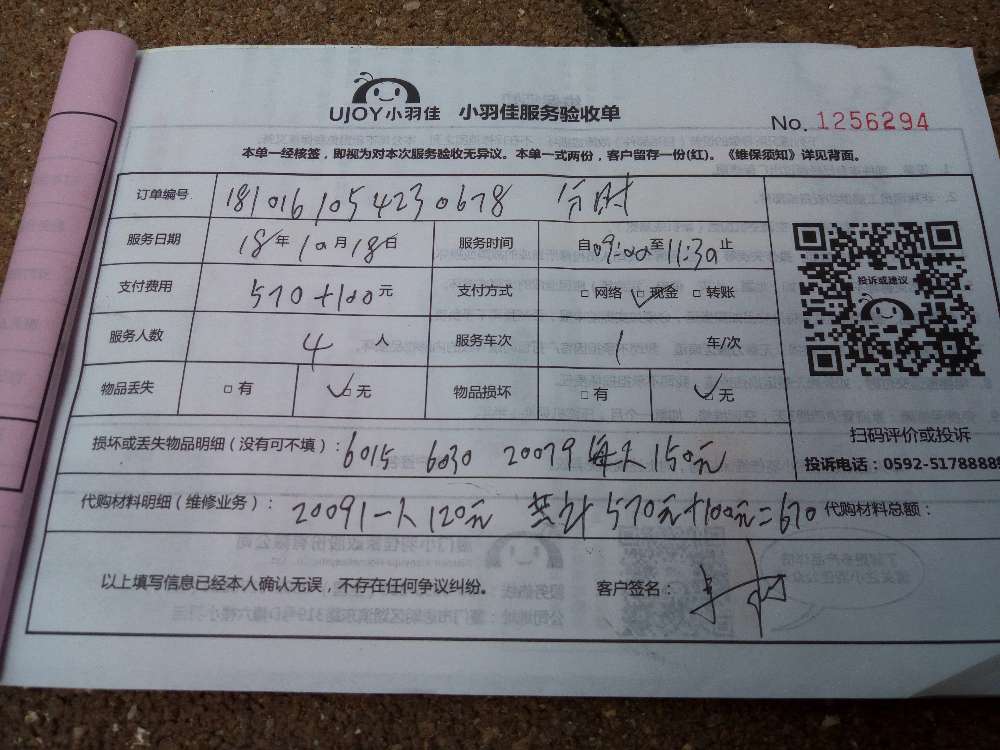 UJOY小羽佳 小羽佳服务验收单
No. 1256294
本单一经核签，即视为对本次服务验收无异议。本单一式两份，客户留存一份(红)。《维保须知》详见背面。
订单编号 1810161054230678 分时
服务日期 18年10月18日 服务时间 自09:00至11:30止
支付费用 570+100元 支付方式 □网络 ☑现金 □转账
服务人数 4人 服务车次 1 车/次
物品丢失 □有 ☑无 物品损坏 □有 ☑无
投诉或建议
扫码评价或投诉
投诉电话：0592-5178888
损坏或丢失物品明细（没有可不填）：6015 6030 20079 每人150元
代购材料明细（维修业务）：20091一人120元 共计570元+100元=670 代购材料总额：
以上填写信息已经本人确认无误，不存在任何争议纠纷。 客户签名：